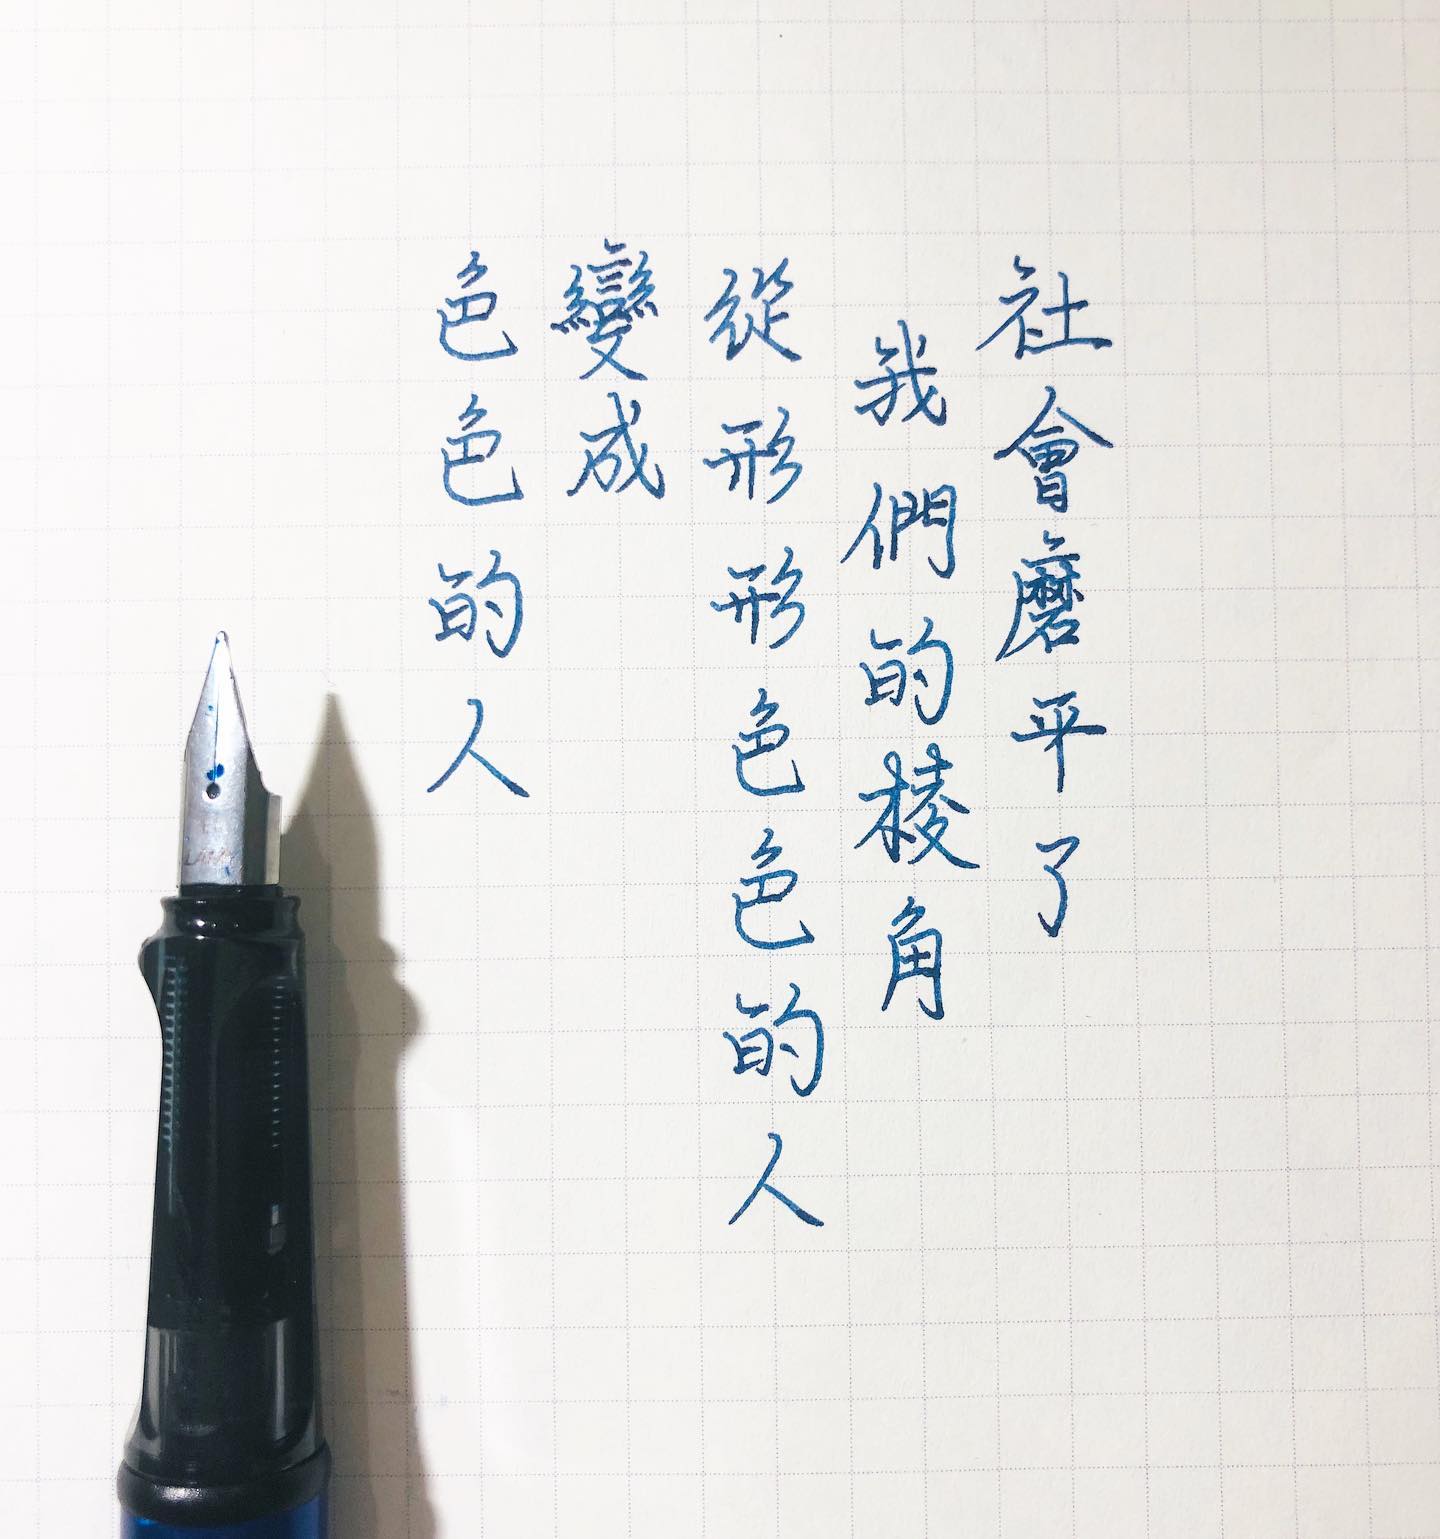 社會磨平了
我們的棱角
從形形色色的人
變成
色色的人
LAMY